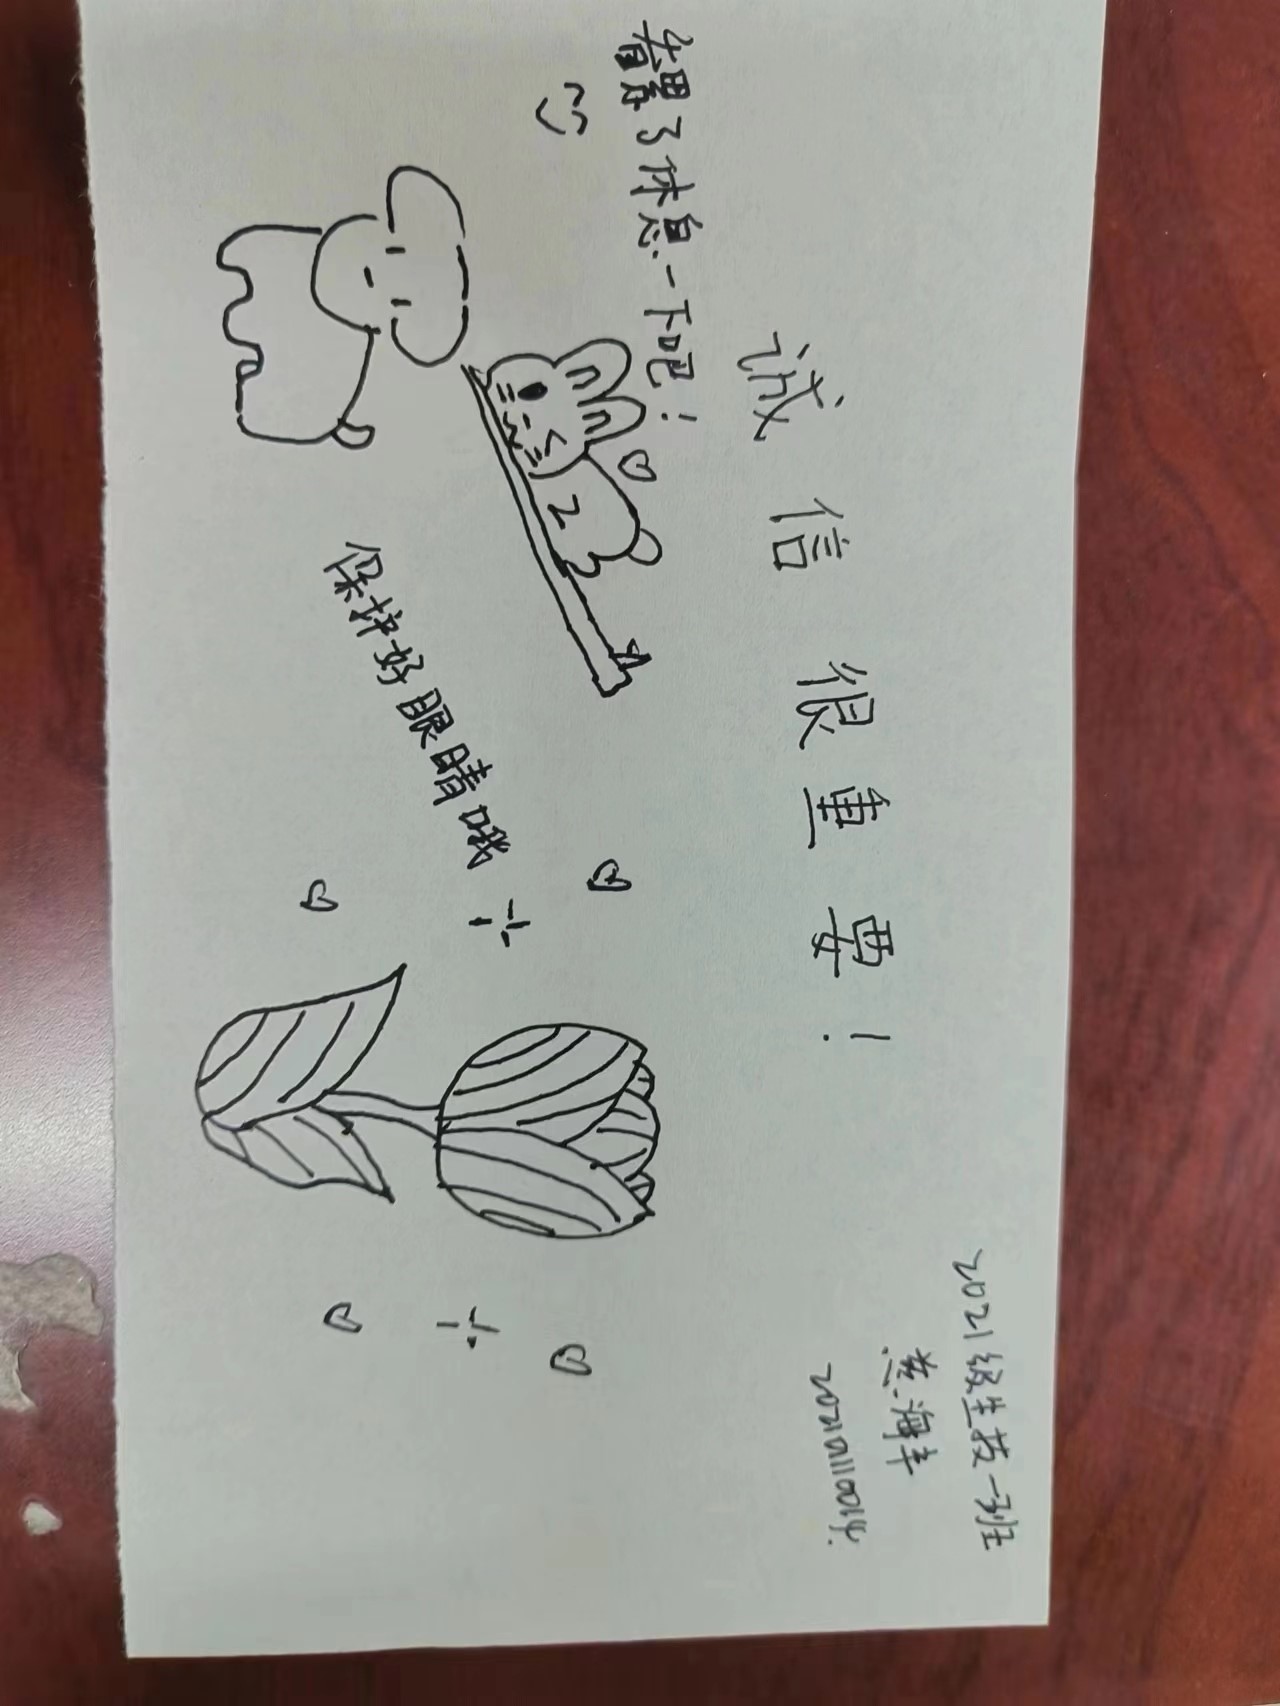 2021级生技一班
诚信很重要!
看累了休息一下吧!
保护好眼睛哦